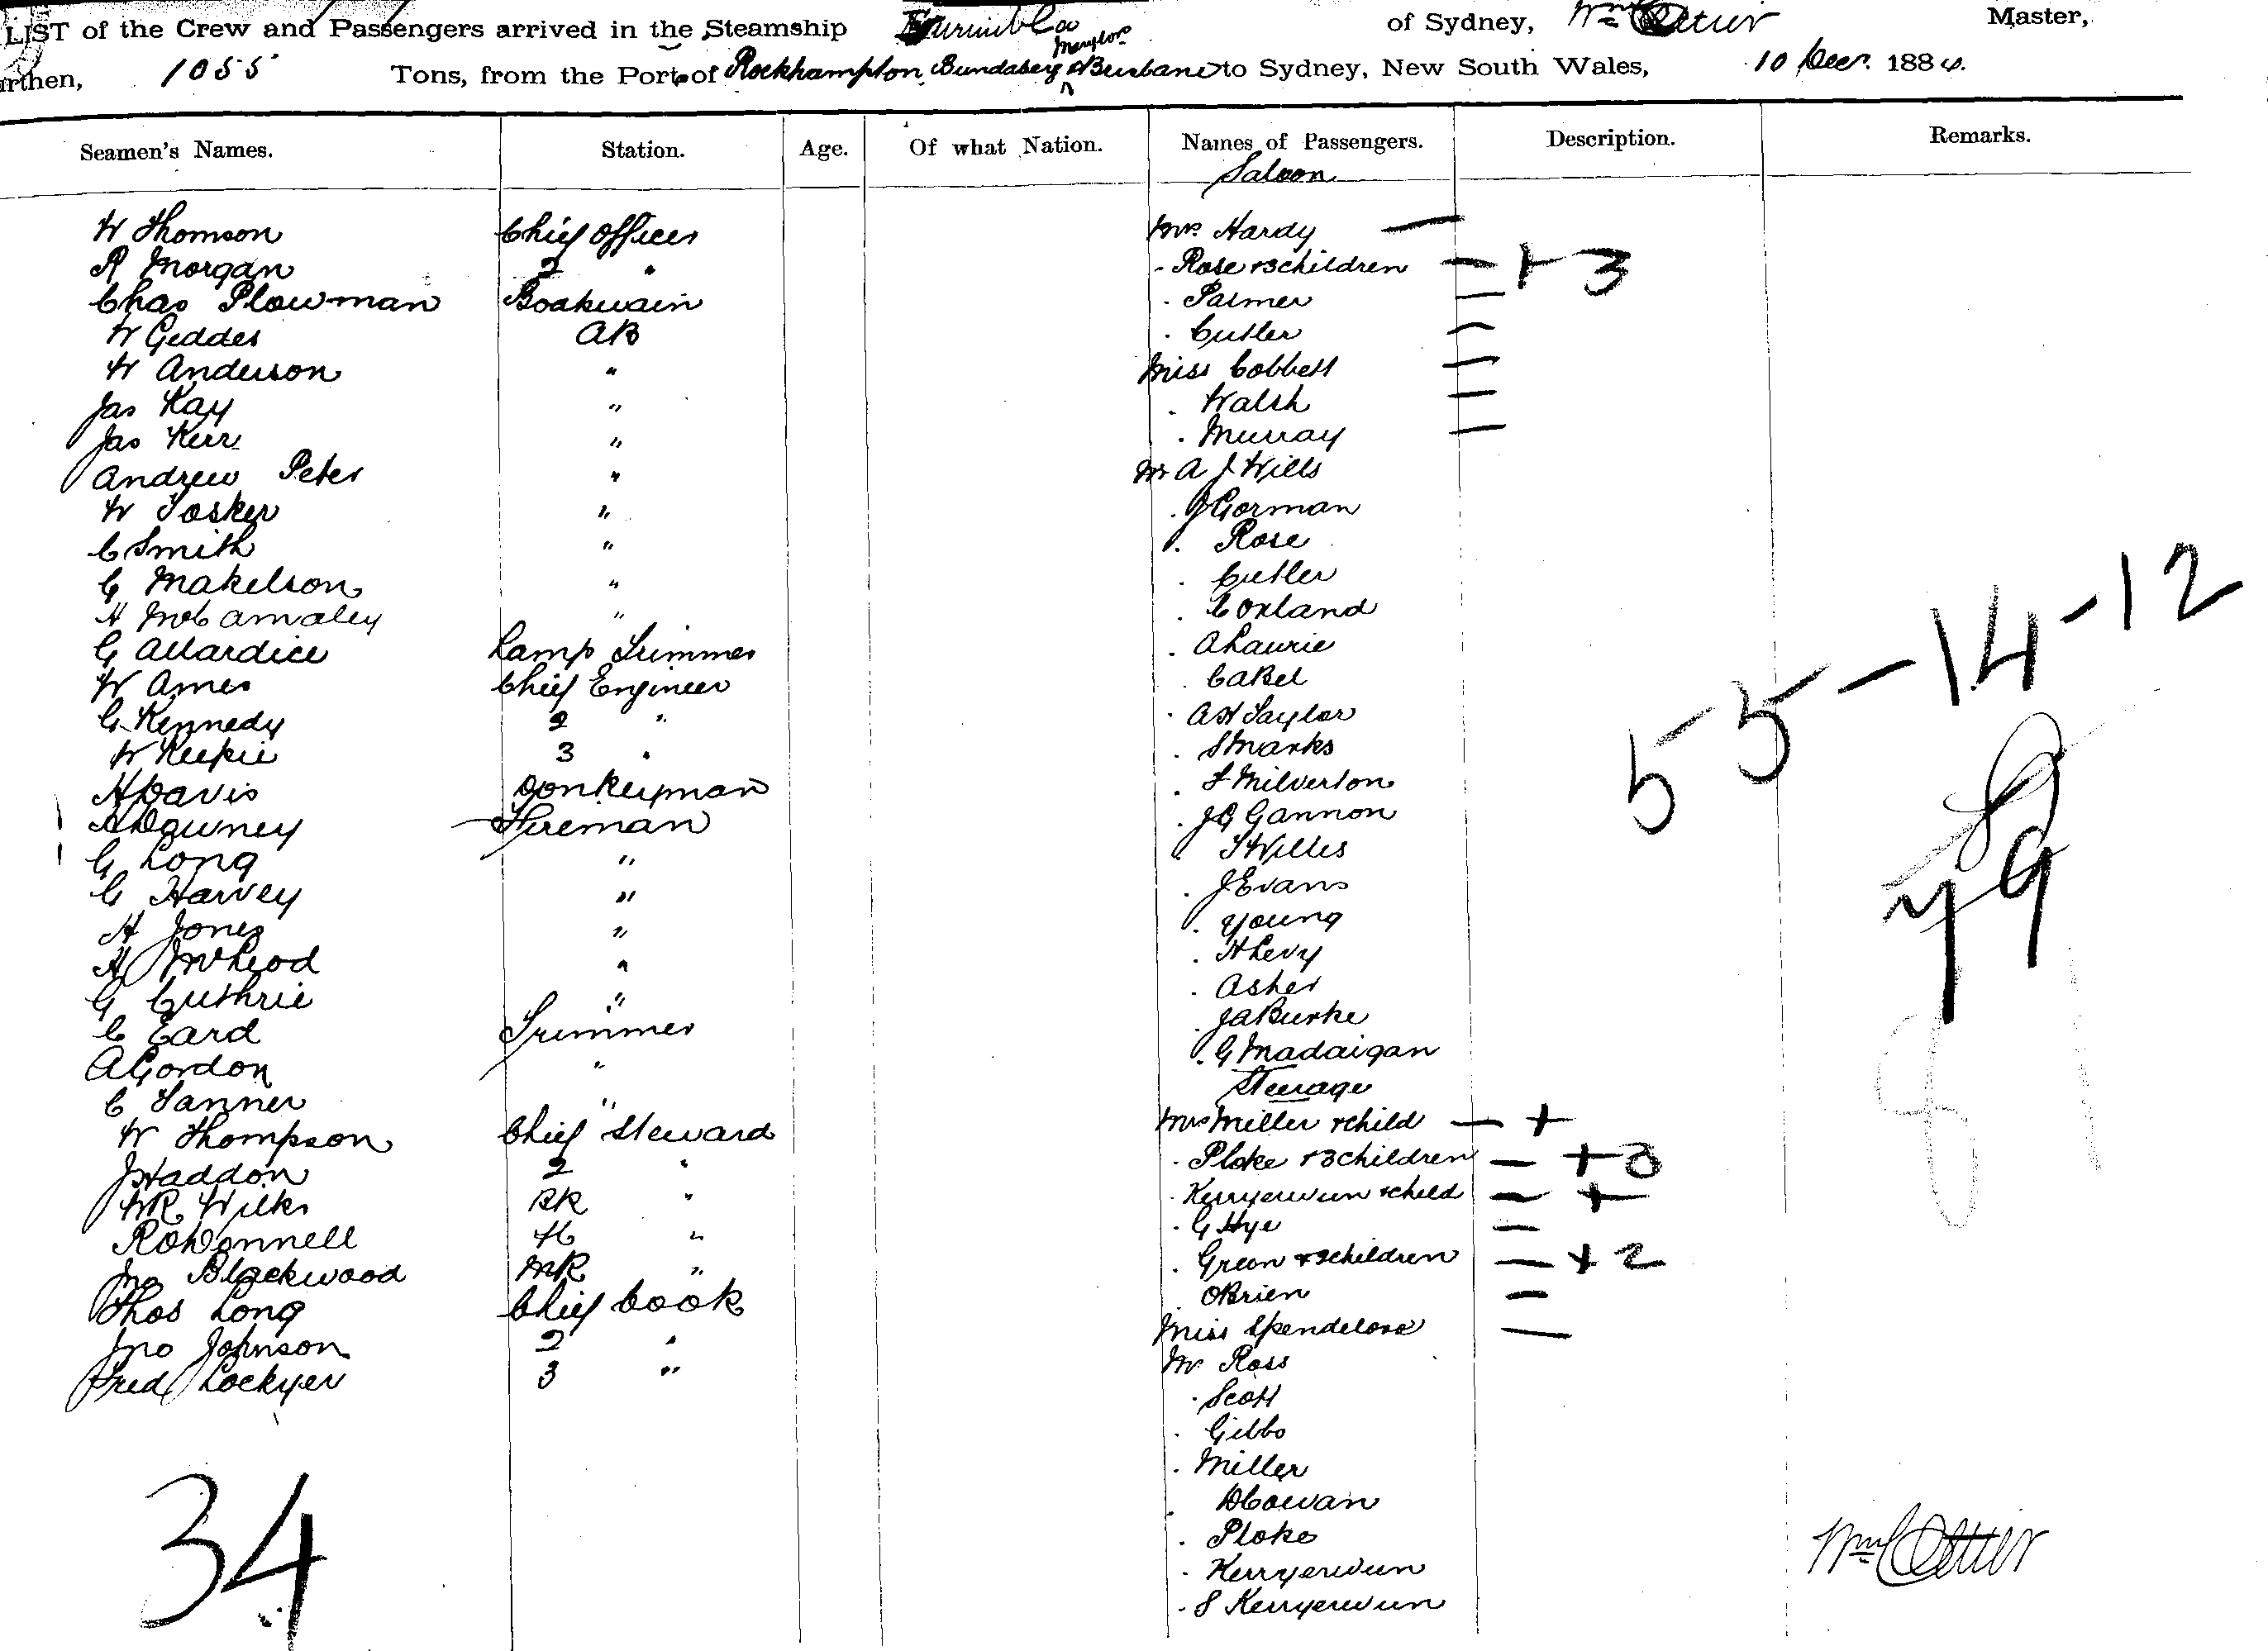 LIST of the Crew and Passengers arrived in the Steamship Burrumbeet of Sydney, Wm Master,
rthen, 1055 Tons, from the Port of Rockhampton Bundaberg & Brisbane to Sydney, New South Wales, 10 Decr. 1884.
Seamen's Names. Station. Age. Of what Nation. Names of Passengers. Description. Remarks.
Saloon
W Thomson Chief Officer Mrs Hardy —
R Morgan 2 " . Rose & 3 children — + 3
Chas Plowman Boatswain . Parmer —
W Geddes AB . Cutler —
W Anderson " Miss Cobbett —
Jas Kay " . Walsh —
Jas Kerr " . Murray —
Andrew Peter " Mr A J Wills
W Tosker " . J Gorman
C Smith " . Rose
G Makelson " . Cutler
H McCamaley " . Coxland
G Allardice Lamp Trimmer . A Laurie
W Ames Chief Engineer . C A Bel
G Kennedy 2 " . A H Taylor
W Keekie 3 " . S Marks
H Davis Donkeyman . F Milverton
A Downey Fireman . J G Gannon
G Long " . T Willis
G Harvey " . J Evans
H Jones " . Young
A McLeod " . H Levy
G Guthrie " . Asher
C Eard Trimmer . J A Burke
A Gordon " . G Madaigan
Steerage
C Tanner " Mrs Miller & child — +
W Thompson Chief Steward . Ploke & 3 children — + 3
J Haddon 2 " . Kerryerwun & child — +
W R Wilks BK " . G Hye —
R O'Donnell " . Green & children — + 2
Jno Blackwood MR " . OBrien —
Thos Long Chief Cook Miss Spendelove —
Jno Johnson 2 " Mr Ross
Fred Lockyer 3 " . Scott
. Gibbs
. Miller
. D Cowan
. Ploke
. Kerryerwun
. S Kerryerwun
55 - 14 - 12
79
34
Wm